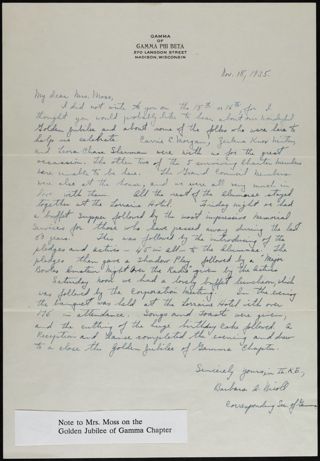 GAMMA
OF
GAMMA PHI BETA
270 LANGDON STREET
MADISON, WISCONSIN
Nov. 18, 1935.
My dear Mrs. Moss,
I did not write to you on the 15th or 16th, for I
thought you would probably like to hear about our wonderful
Golden Jubilee and about some of the folks who were here to
help us celebrate. Carrie E. Morgan,
and were with us for the great
occasion. The other two of the 5 surviving Charter members
were unable to be here. The Grand Council Members
were also at the house, and we were all very much in
love with them. All the rest of the alumnae stayed
together at the Loraine Hotel. Friday night we had
a buffet supper followed by the most impressive Memorial
Services for those who have passed away during the last
50 years. This was followed by the introducing of the
pledges and actives - 65 in all - to the alumnae. The
pledges then gave a Shadow Play followed by a "Major
Bowles Amateur Night Over the Radio" given by the actives.
Saturday noon we had a lovely buffet luncheon, which
was followed by the Corporation Meeting. In the evening
the banquet was held at the Loraine Hotel with over
in attendance. Songs and toasts were given,
and the cutting of the huge birthday cake followed. A
Reception and dance completed the evening and drew
to a close the Golden Jubilee of Gamma Chapter.
Sincerely yours, in
Barbara
Corresponding Sec. of Gamma
Note to Mrs. Moss on the
Golden Jubilee of Gamma Chapter